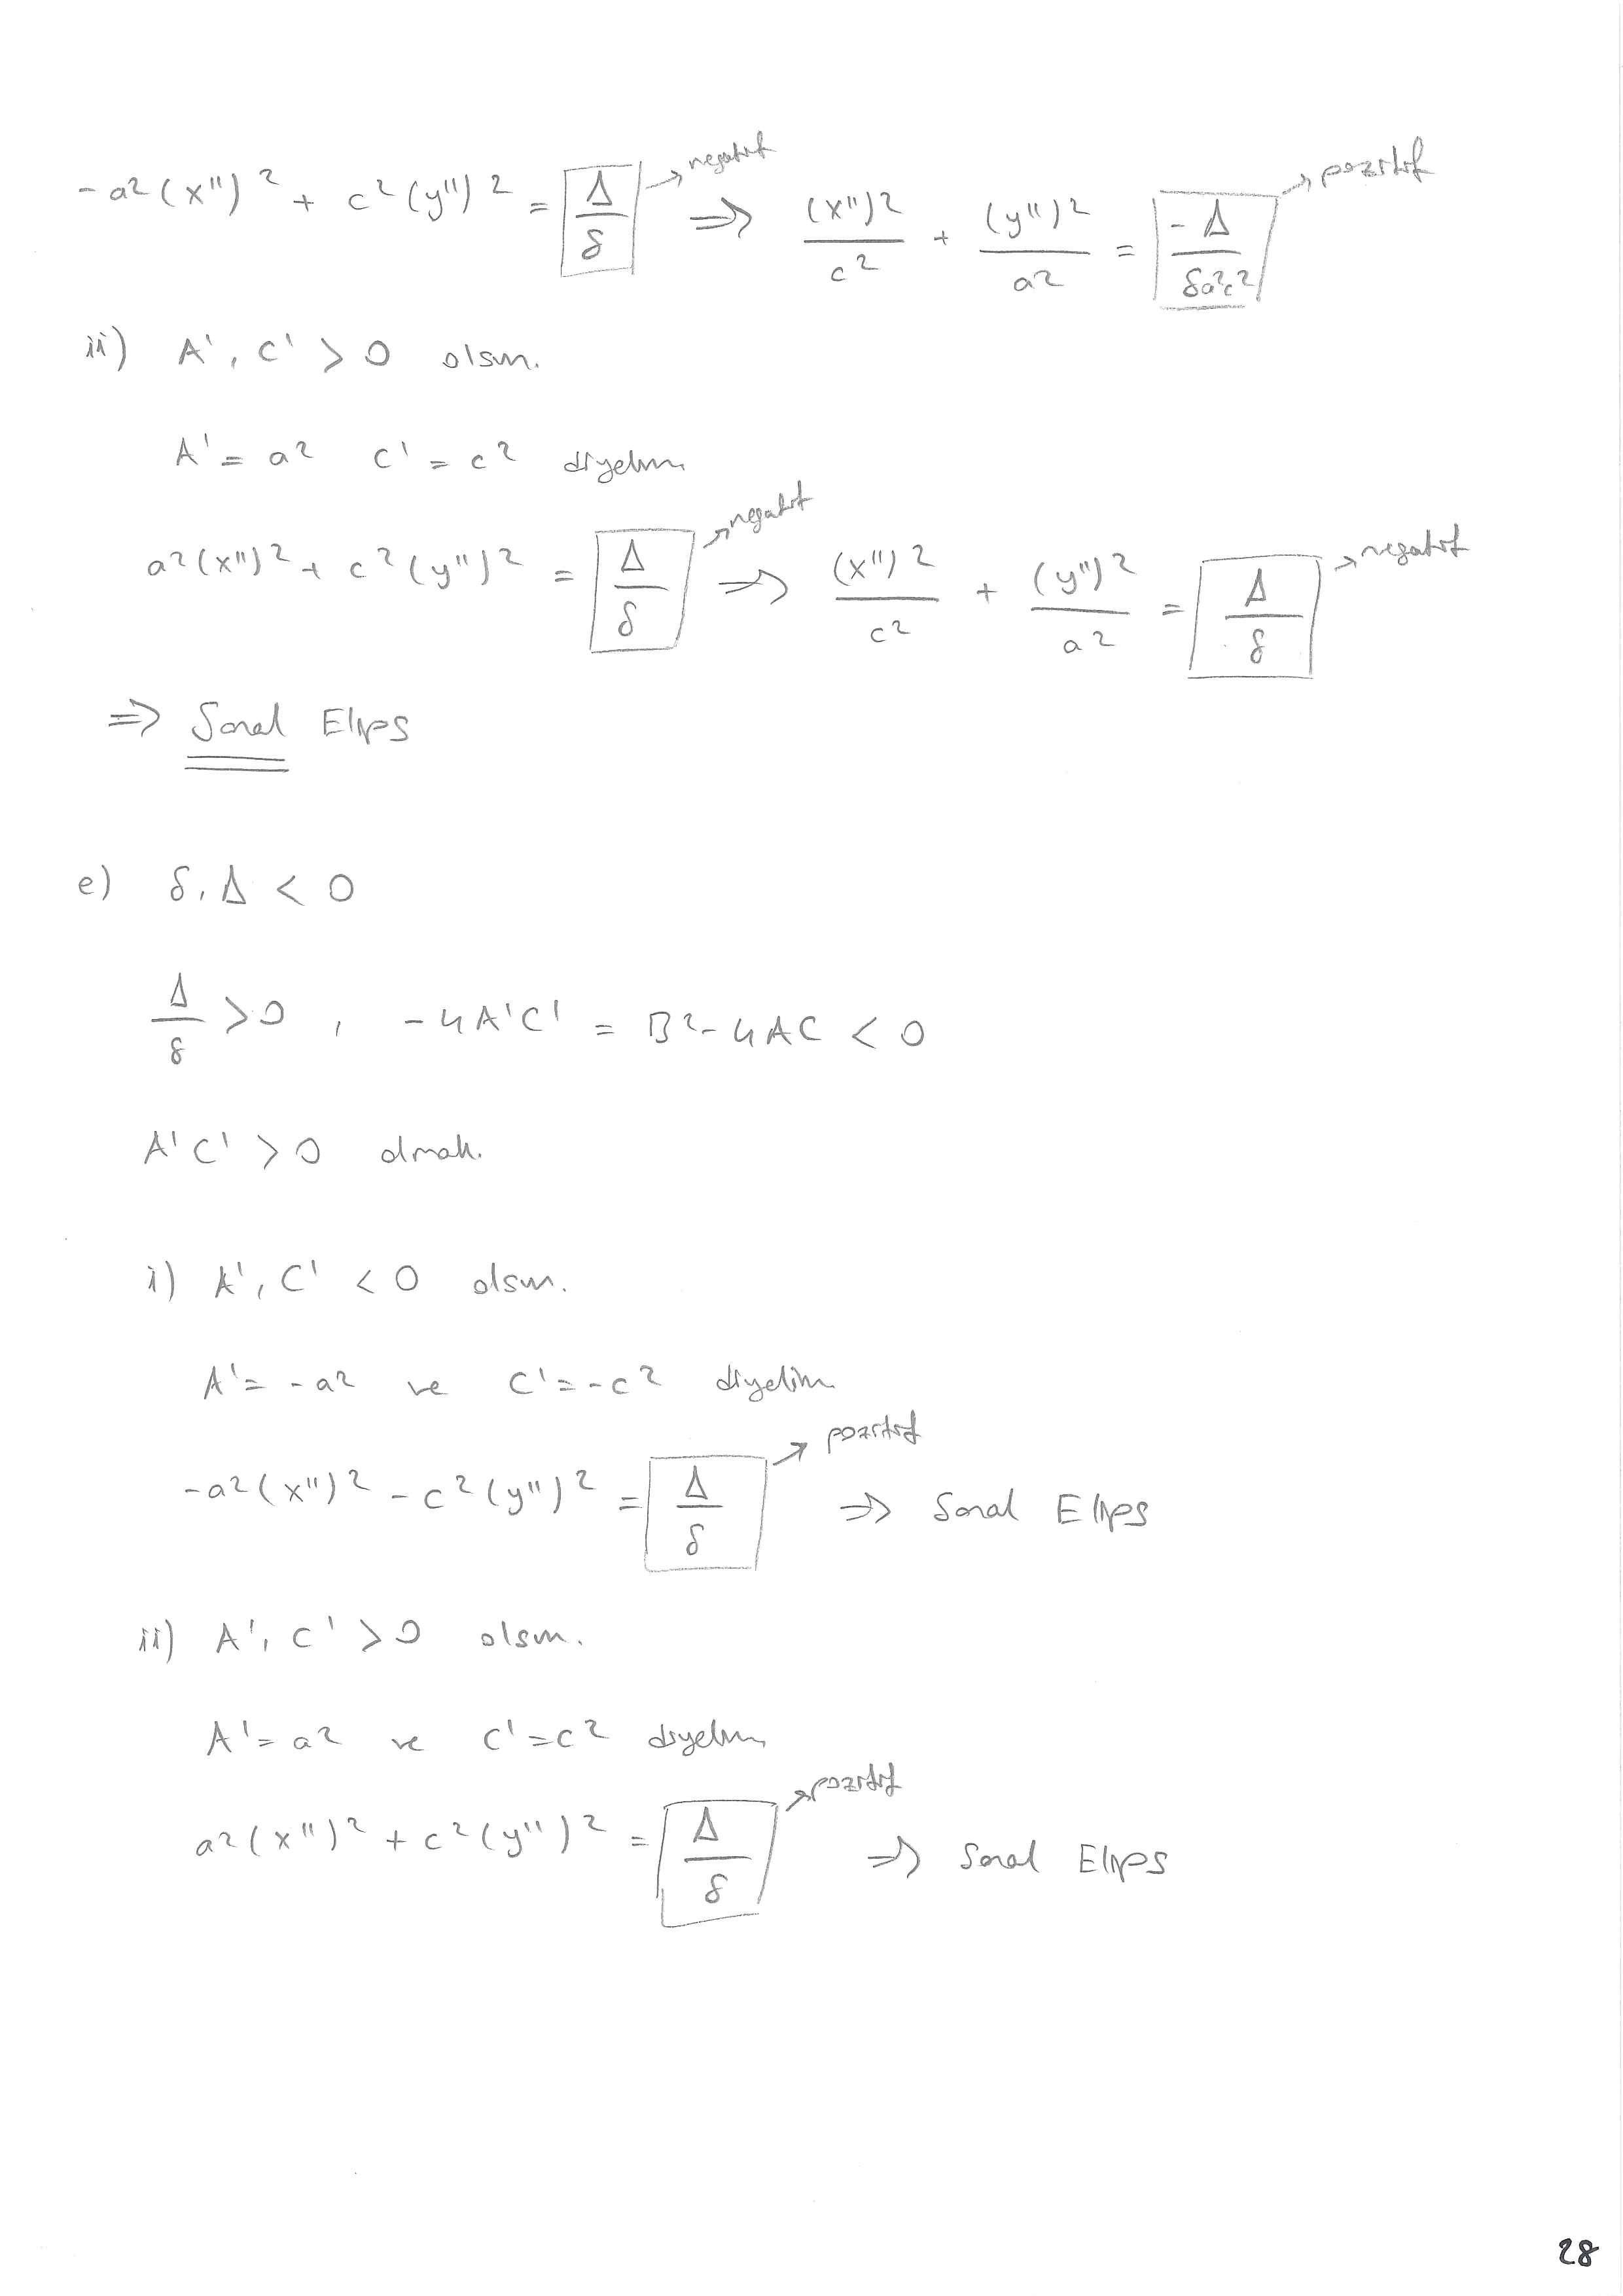 -a²(x'')² + c²(y'')² = Δ/δ → negatif ⇒ (x'')²/c² + (y'')²/a² = -Δ/δa²c² → pozitif
ii) A', C' > 0 olsun.
A' = a² C' = c² diyelim
a²(x'')² + c²(y'')² = Δ/δ → negatif ⇒ (x'')²/c² + (y'')²/a² = Δ/δ → negatif
⇒ Sanal Elips
e) δ, Δ < 0
Δ/δ > 0 , -4A'C' = B²-4AC < 0
A'C' > 0 olmalı.
i) A', C' < 0 olsun.
A' = -a² ve C' = -c² diyelim
-a²(x'')² - c²(y'')² = Δ/δ → pozitif ⇒ Sanal Elips
ii) A', C' > 0 olsun.
A' = a² ve C' = c² diyelim
a²(x'')² + c²(y'')² = Δ/δ → pozitif ⇒ Sanal Elips
28